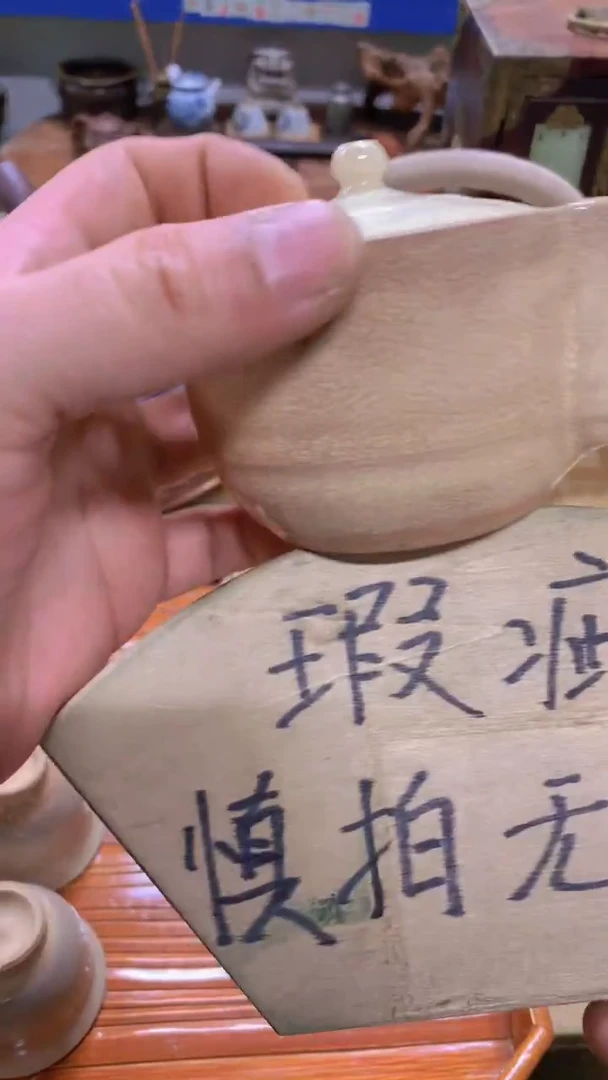 瑕疵
慎拍无